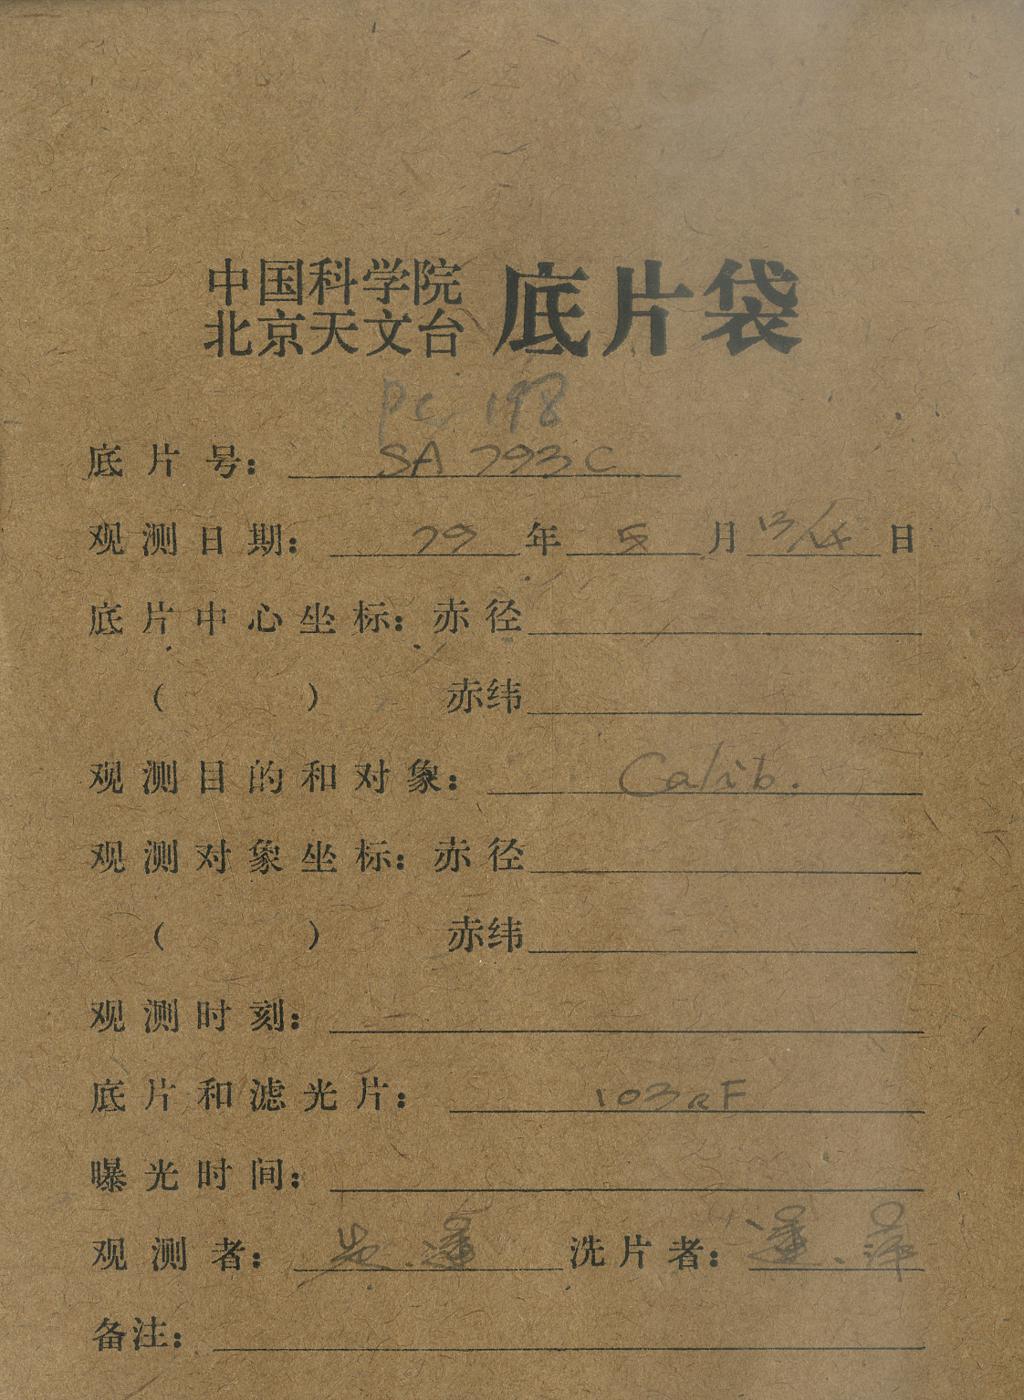 中国科学院
北京天文台 底片袋
PC 198
底片号： SA 793C
观测日期： 79 年 5 月 13/14 日
底片中心坐标：赤径
（ ） 赤纬
观测目的和对象： Calib.
观测对象坐标：赤径
（ ） 赤纬
观测时刻：
底片和滤光片： 103aF
曝光时间：
观测者： 洗片者：
备注：